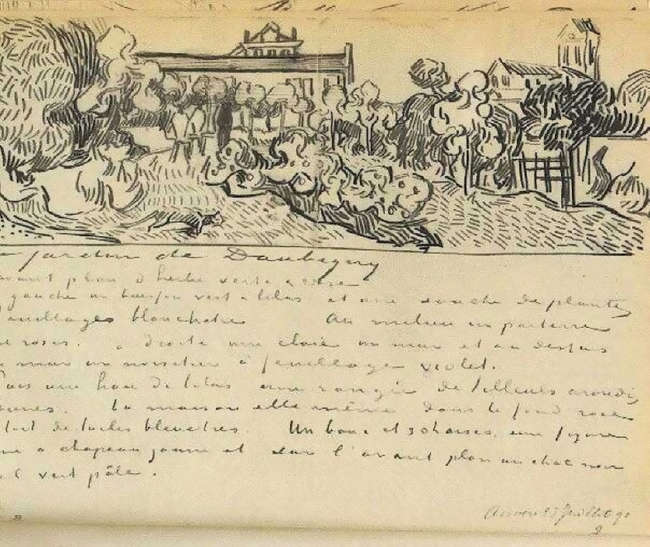 jardin de Daubigny
avant plan d'herbe verte & rose
gauche un buisson vert & lilas et une souche de plantes
feuillages blanchatre Au milieu un parterre
de roses. à droite une claie un mur et au dessus
du mur un noisetier à feuillage violet.
Puis une haie de lilas une rangée de tilleuls arrondis
jaunes. La maison elle même dans le fond rose
toit de tuiles bleuâtres. Un banc et 3 chaises, une figure
noire à chapeau jaune et sur l'avant plan un chat noir
ciel vert pâle.
Auvers 23 Juillet 90